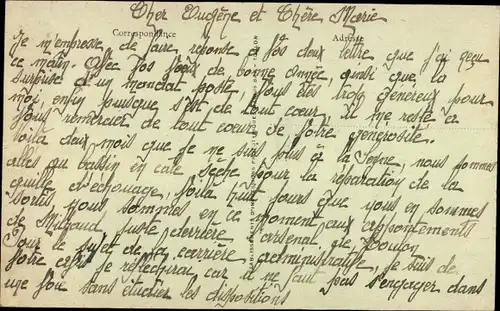 Cher Eugène et Chère Marie
Correspondance Adresse
Je m'empresse de faire réponse à Vos deux lettre que j'ai reçu
ce matin. Avec Vos Vœux de bonne année, ainsi que la
surprise d'un mandat poste, Vous êtes trop généreux pour
moi, enfin puisque s'est de tout cœur il me reste à
Vous remercier de tout cœur de Votre générosité.
Voilà deux mois que je ne suis plus à la Seyne, nous sommes
allés au bassin en cale sèche pour la réparation de la
quille d'échouage, Voilà huit jours que nous en sommes
sortis, nous sommes en ce moment aux appontements
de Milhaud juste derrière arsenal de Toulon
Pour le sujet de la carrière administrative, je suis de
Votre je réfléchirai car il ne faut pas s'engager dans
une Voie sans étudier les dispositions